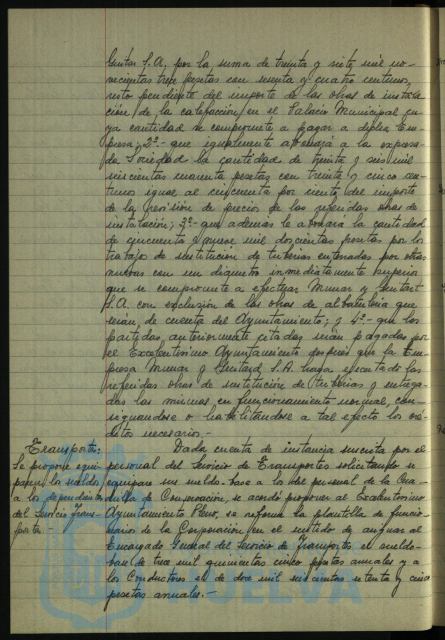 Guitar S.A. por la suma de treinta y siete mil no-
vecientas tres pesetas con sesenta y cuatro centimos,
resto pendiente del importe de las obras de instala
ción de la calefacción en el Palacio Municipal cu-
ya cantidad se compromete a pagar a dicha Em-
presa; 2º.- que igualmente abonará a la expresa-
da Sociedad la cantidad de treinta y seis mil
seiscientas cincuenta pesetas con treinta y cinco cen-
timos igual al cincuenta por ciento del importe
de la revisión de precios de las referidas obras de
instalación; 3º.- que además le abonará la cantidad
de cincuenta y nueve mil doscientas pesetas por los
trabajos de sustitución de tuberias enterradas por otras
nuevas con un diametro inmediatamente superior
que se compromete a efectuar Munar y Guitart
S.A. con exclusión de las obras de albañileria que
serán de cuenta del Ayuntamiento; y 4º.- que las
partidas anteriormente citadas serán pagadas por
el Excelentisimo Ayuntamiento despues que la Em-
presa Munar y Guitard S.A. haya ejecutado las
referidas obras de sustitución de tuberias y entrega-
das las mismas en funcionamiento normal, con-
signandose o habilitandose a tal efecto los cré-
ditos necesarios.-
Transportes:
Se propone equi-
parar los sueldos
a los dependientes
del Servicio Trans-
portes.
Dada cuenta de instancia suscrita por el
personal del Servicio de Transportes solicitando se
equipare sus sueldos-base a los del personal de la Cua-
drilla de Conservación, se acordó proponer al Excelentisimo
Ayuntamiento Pleno, se reforme la plantilla de funcio-
narios de la Corporación en el sentido de asignar al
Encargado General del Servicio de Transportes el sueldo-
base de trece mil quinientas cinco pesetas anuales y a
los Conductores el de doce mil seiscientas setenta y cinco
pesetas anuales.-
HUELVA